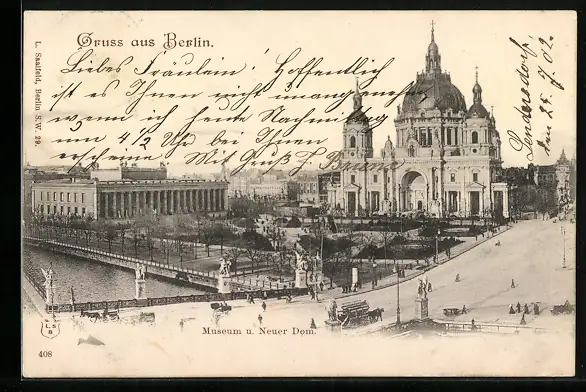 Gruss aus Berlin.
L. Saalfeld, Berlin S.W. 29.
Liebes Fräulein! Hoffentlich
ist es Ihnen nicht unangenehm
wenn ich heute Nachmittag
um 4 1/2 Uhr bei Ihnen
erscheine. Mit Gruß
den 25. 7. 02.
L S
B
Museum u. Neuer Dom.
408